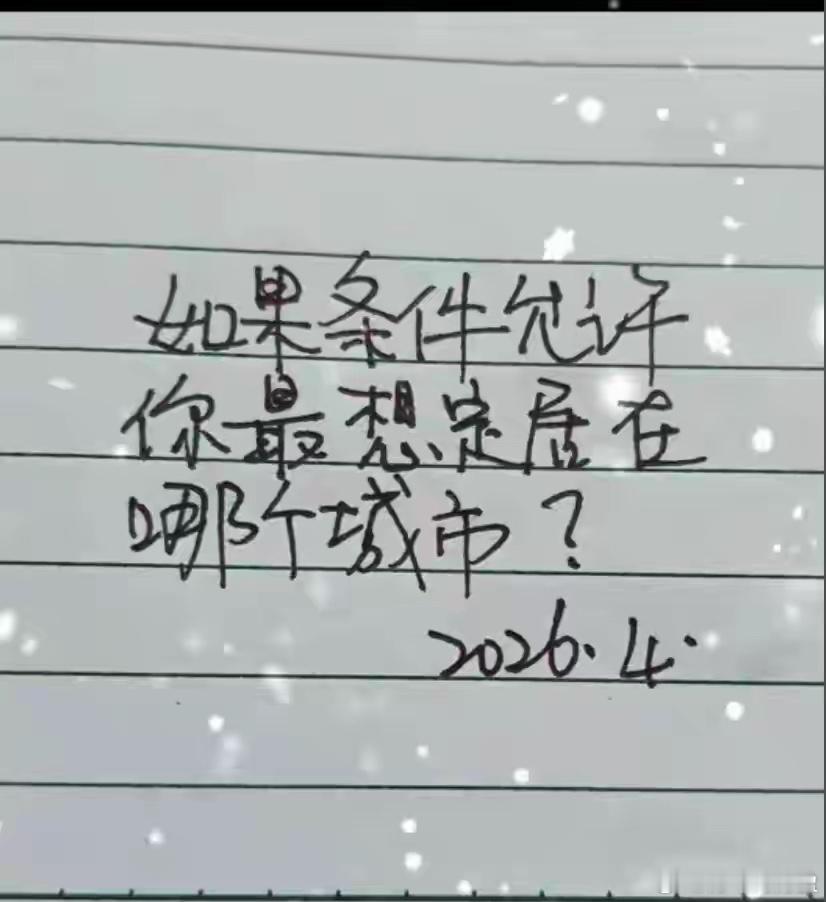 如果条件允许
你最想定居在
哪个城市？
2026.4.